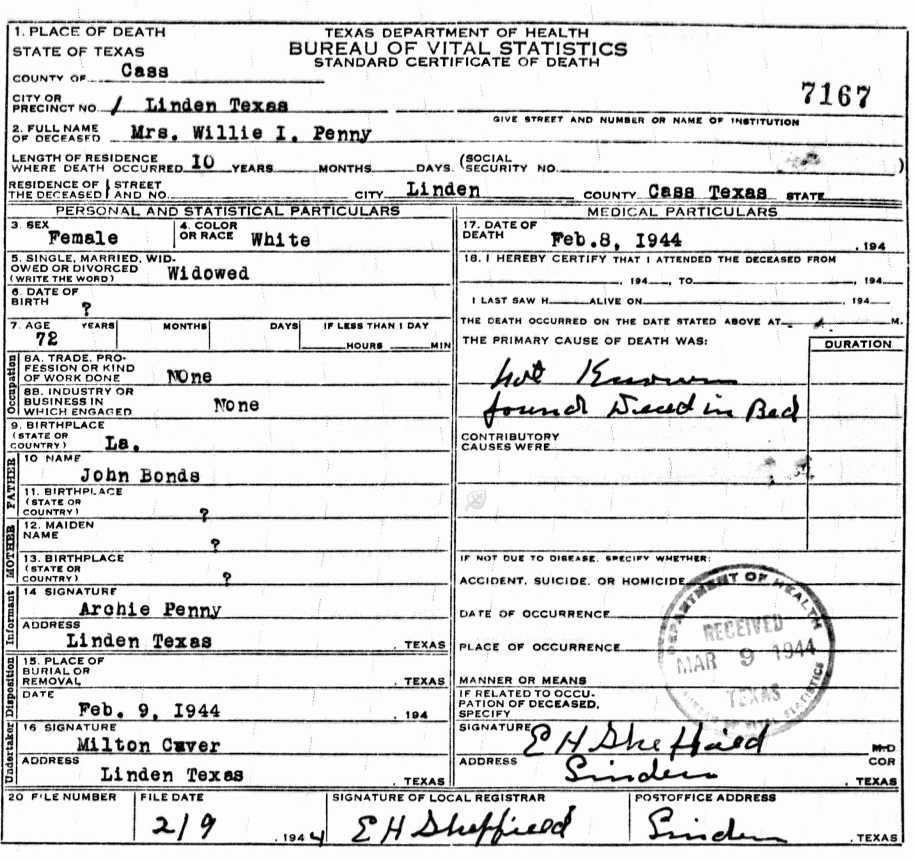 TEXAS DEPARTMENT OF HEALTH
BUREAU OF VITAL STATISTICS
STANDARD CERTIFICATE OF DEATH
1. PLACE OF DEATH
STATE OF TEXAS
COUNTY OF Cass
CITY OR PRECINCT NO. / Linden Texas
7167
GIVE STREET AND NUMBER OR NAME OF INSTITUTION
2. FULL NAME OF DECEASED Mrs. Willie I. Penny
LENGTH OF RESIDENCE WHERE DEATH OCCURRED 10 YEARS MONTHS DAYS. (SOCIAL SECURITY NO. )
RESIDENCE OF THE DECEASED { STREET AND NO. CITY Linden COUNTY Cass Texas STATE
PERSONAL AND STATISTICAL PARTICULARS
3. SEX Female 4. COLOR OR RACE White
5. SINGLE, MARRIED, WIDOWED OR DIVORCED (WRITE THE WORD) Widowed
6. DATE OF BIRTH ?
7. AGE YEARS MONTHS DAYS IF LESS THAN 1 DAY
72 HOURS MIN
Occupation
8A. TRADE, PROFESSION OR KIND OF WORK DONE NOne
8B. INDUSTRY OR BUSINESS IN WHICH ENGAGED None
9. BIRTHPLACE (STATE OR COUNTRY) La.
FATHER
10 NAME
John Bonds
11. BIRTHPLACE (STATE OR COUNTRY) ?
MOTHER
12. MAIDEN NAME ?
13. BIRTHPLACE (STATE OR COUNTRY) ?
Informant
14 SIGNATURE
Archie Penny
ADDRESS
Linden Texas , TEXAS
Disposition
15. PLACE OF BURIAL OR REMOVAL , TEXAS
DATE
Feb. 9, 1944 , 194
Undertaker
16 SIGNATURE
Milton Cuver
ADDRESS
Linden Texas , TEXAS
MEDICAL PARTICULARS
17. DATE OF DEATH Feb.8, 1944 , 194
18. I HEREBY CERTIFY THAT I ATTENDED THE DECEASED FROM
, 194 , TO , 194
I LAST SAW H ALIVE ON , 194
THE DEATH OCCURRED ON THE DATE STATED ABOVE AT M.
THE PRIMARY CAUSE OF DEATH WAS: DURATION
not Known
found Dead in Bed
CONTRIBUTORY CAUSES WERE
IF NOT DUE TO DISEASE, SPECIFY WHETHER:
ACCIDENT, SUICIDE, OR HOMICIDE
DATE OF OCCURRENCE
PLACE OF OCCURRENCE
MANNER OR MEANS
IF RELATED TO OCCUPATION OF DECEASED, SPECIFY
DEPARTMENT OF HEALTH
RECEIVED
MAR 9 1944
TEXAS
BUREAU OF VITAL STATISTICS
SIGNATURE E H Sheffield M.D
ADDRESS Linden COR
, TEXAS
20 FILE NUMBER FILE DATE SIGNATURE OF LOCAL REGISTRAR POSTOFFICE ADDRESS
2/9 , 1944 E H Sheffield Linden , TEXAS